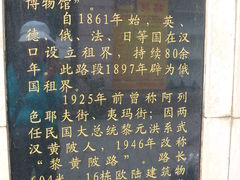 博物馆”。
自1861年始，英、
德、俄、法、日等国在汉
口设立租界，持续80余
年。此路段1897年辟为俄
国租界。
1925年前曾称阿列
色耶夫街、夷玛街；因两
任民国大总统黎元洪系武
汉黄陂人，1946年改称
“黎黄陂路”。路长
604米，16栋欧陆建筑物